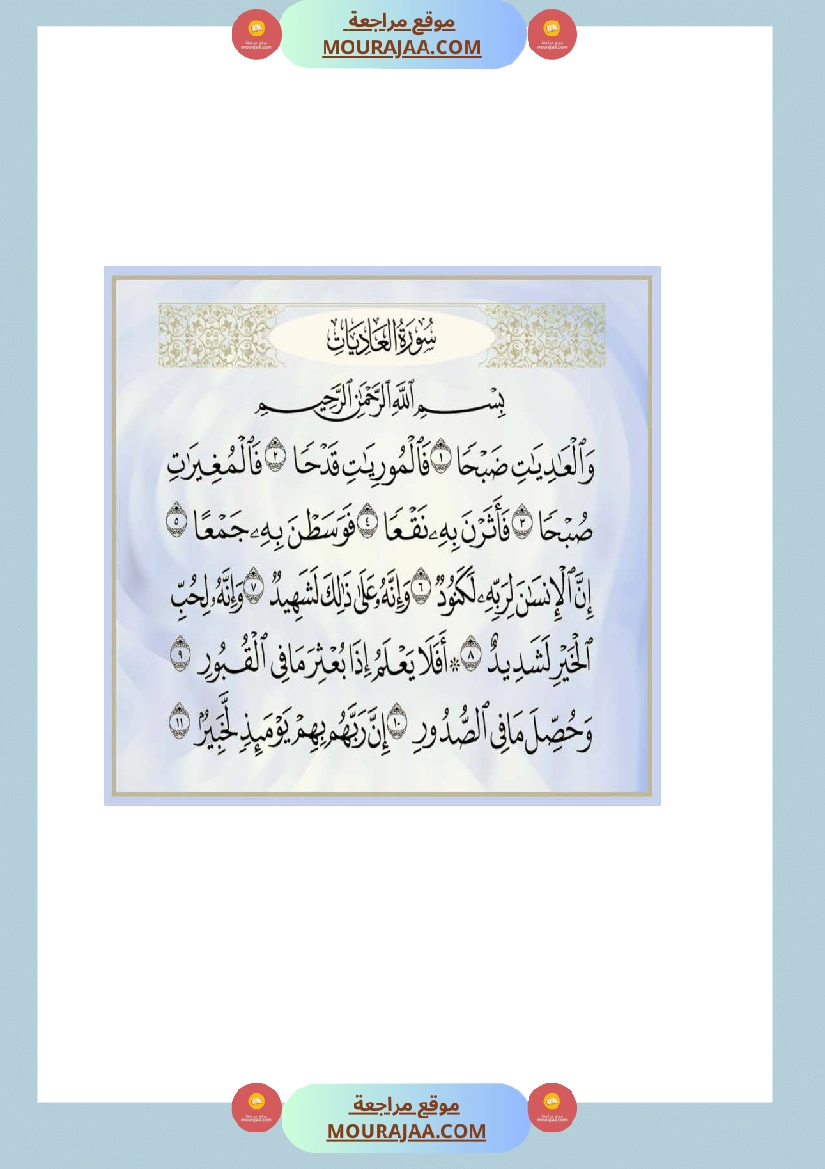 موقع مراجعة
MOURAJAA.COM
سُورَةُ العَادِيَاتِ
بِسْمِ ٱللَّهِ ٱلرَّحْمَٰنِ ٱلرَّحِيمِ
وَٱلْعَٰدِيَٰتِ ضَبْحًا ١ فَٱلْمُورِيَٰتِ قَدْحًا ٢ فَٱلْمُغِيرَٰتِ
صُبْحًا ٣ فَأَثَرْنَ بِهِۦ نَقْعًا ٤ فَوَسَطْنَ بِهِۦ جَمْعًا ٥
إِنَّ ٱلْإِنسَٰنَ لِرَبِّهِۦ لَكَنُودٌ ٦ وَإِنَّهُۥ عَلَىٰ ذَٰلِكَ لَشَهِيدٌ ٧ وَإِنَّهُۥ لِحُبِّ
ٱلْخَيْرِ لَشَدِيدٌ ٨ ۞ أَفَلَا يَعْلَمُ إِذَا بُعْثِرَ مَا فِى ٱلْقُبُورِ ٩
وَحُصِّلَ مَا فِى ٱلصُّدُورِ ١٠ إِنَّ رَبَّهُم بِهِمْ يَوْمَئِذٍ لَّخَبِيرٌۢ ١١
موقع مراجعة
MOURAJAA.COM